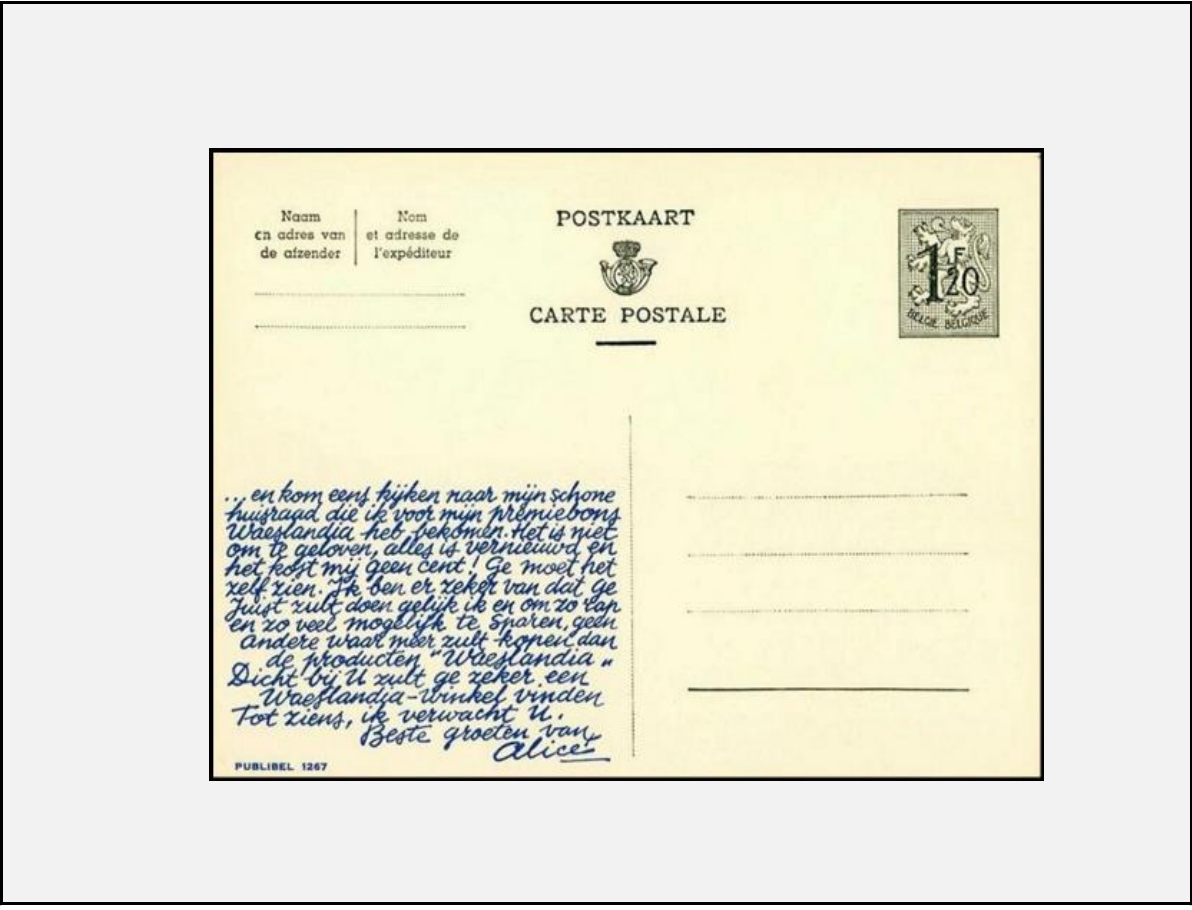 Naam
en adres van
de afzender
Nom
et adresse de
l'expéditeur
POSTKAART
CARTE POSTALE
1F
20
BELGIE BELGIQUE
...en kom eens kijken naar mijn schone
huisraad die ik voor mijn premiebons
Waeslandia heb bekomen. Het is niet
om te geloven, alles is vernieuwd en
het kost mij geen cent! Ge moet het
zelf zien. Ik ben er zeker van dat Ge
juist zult doen gelijk ik en om zo rap
en zo veel mogelijk te sparen, geen
andere waar meer zult kopen dan
de producten "Waeslandia"
Dicht bij U zult ge zeker een
Waeslandia-winkel vinden
Tot ziens, ik verwacht U.
Beste groeten van
Alice
PUBLIBEL 1267